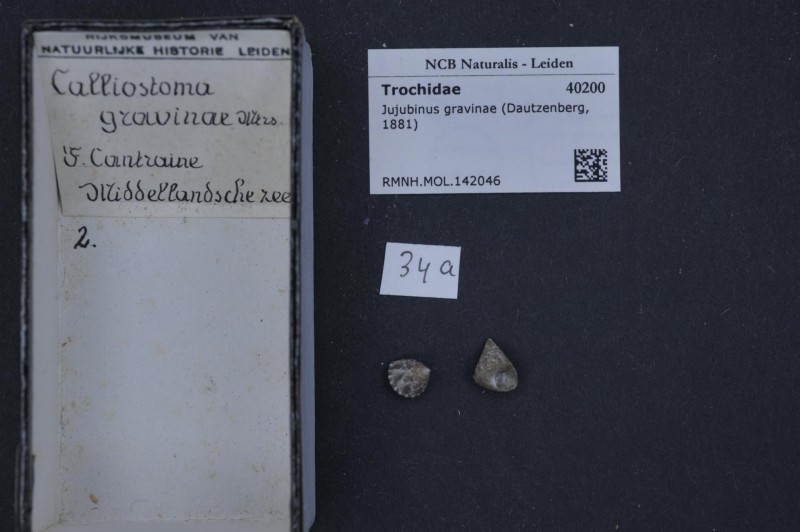 RIJKSMUSEUM VAN
NATUURLIJKE HISTORIE LEIDEN
Calliostoma
gravinae Mtrs.
F. Cantraine
Middellandsche zee
2.
NCB Naturalis - Leiden
Trochidae 40200
Jujubinus gravinae (Dautzenberg,
1881)
RMNH.MOL.142046
34a